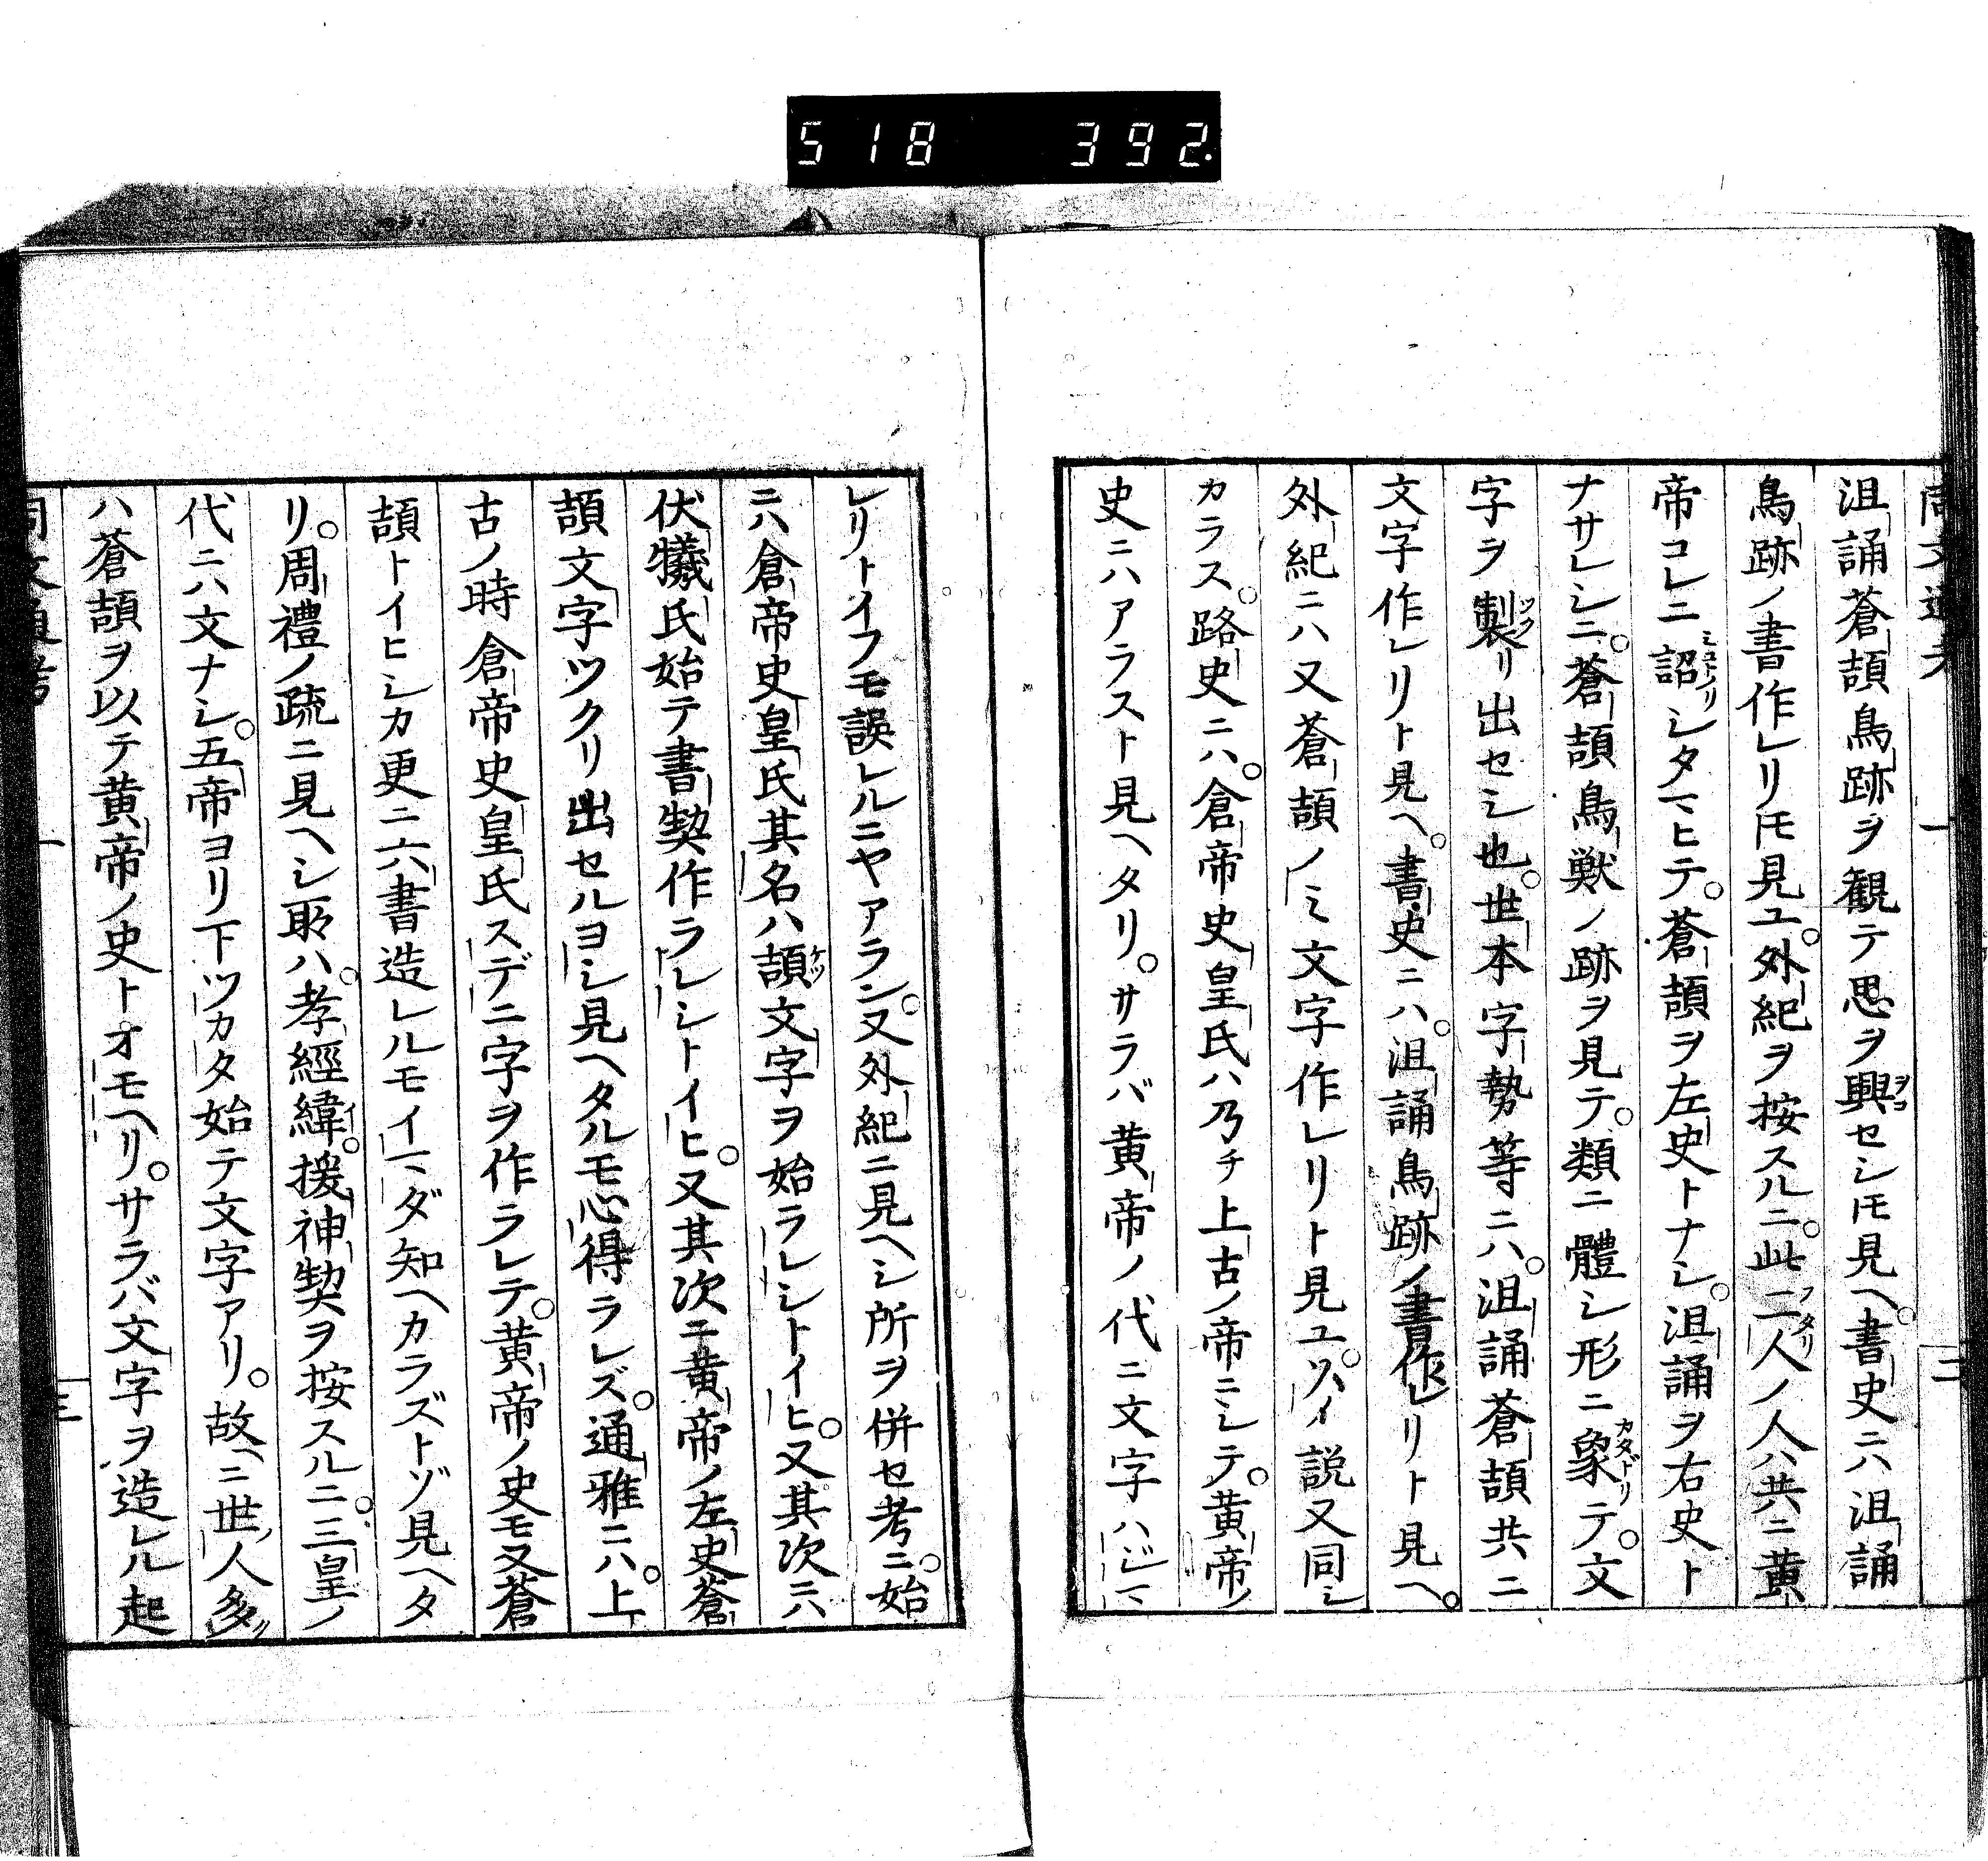 518 392.
沮誦蒼頡鳥跡ヲ観テ思ヲ興セシヿモ見ヘ。書史ニハ沮誦
鳥跡ノ書作レリヿモ見ユ。外紀ヲ按スルニ。此二人ノ人ハ共ニ黄
帝コレニ詔シタマヒテ。蒼頡ヲ左史トナシ。沮誦ヲ右史ト
ナサレシニ。蒼頡鳥獣ノ跡ヲ見テ。類ニ體シ形ニ象テ。文
字ヲ製リ出セシ也。世本字勢等ニハ。沮誦蒼頡共ニ
文字作レリト見ヘ。書史ニハ。沮誦鳥跡ノ書作レリト見ヘ。
外紀ニハ又蒼頡ノミ文字作レリト見ユ。 説又同シ
カラス。路史ニハ。倉帝史皇氏ハ乃チ上古ノ帝ニシテ。黄帝ノ
史ニハアラスト見ヘタリ。サラバ黄帝ノ代ニ文字ハジマ
レリトイフモ誤レルニヤアラン。又外紀ニ見ヘシ所ヲ併セ考ニ。始
ニハ倉帝史皇氏其名ハ頡文字ヲ始ラレシトイヒ。又其次ニハ
伏犠氏始テ書契作ラレシトイヒ。又其次ニ黄帝ノ左史蒼
頡文字ツクリ出セルヨシ見ヘタルモ心得ラレズ。通雅ニハ。上
古ノ時倉帝史皇氏スデニ字ヲ作ラレテ。黄帝ノ史モ又蒼
頡トイヒシカ更ニ六書造レルモイマダ知ヘカラズトゾ見ヘタ
リ。周禮ノ疏ニ見ヘシ所ハ。孝經緯。援神契ヲ按スルニ。三皇ノ
代ニハ文ナシ。五帝ヨリ下ツカタ始テ文字アリ。故ニ世ノ人多ク
ハ蒼頡ヲ以テ黄帝ノ史トオモヘリ。サラバ文字ヲ造レル起